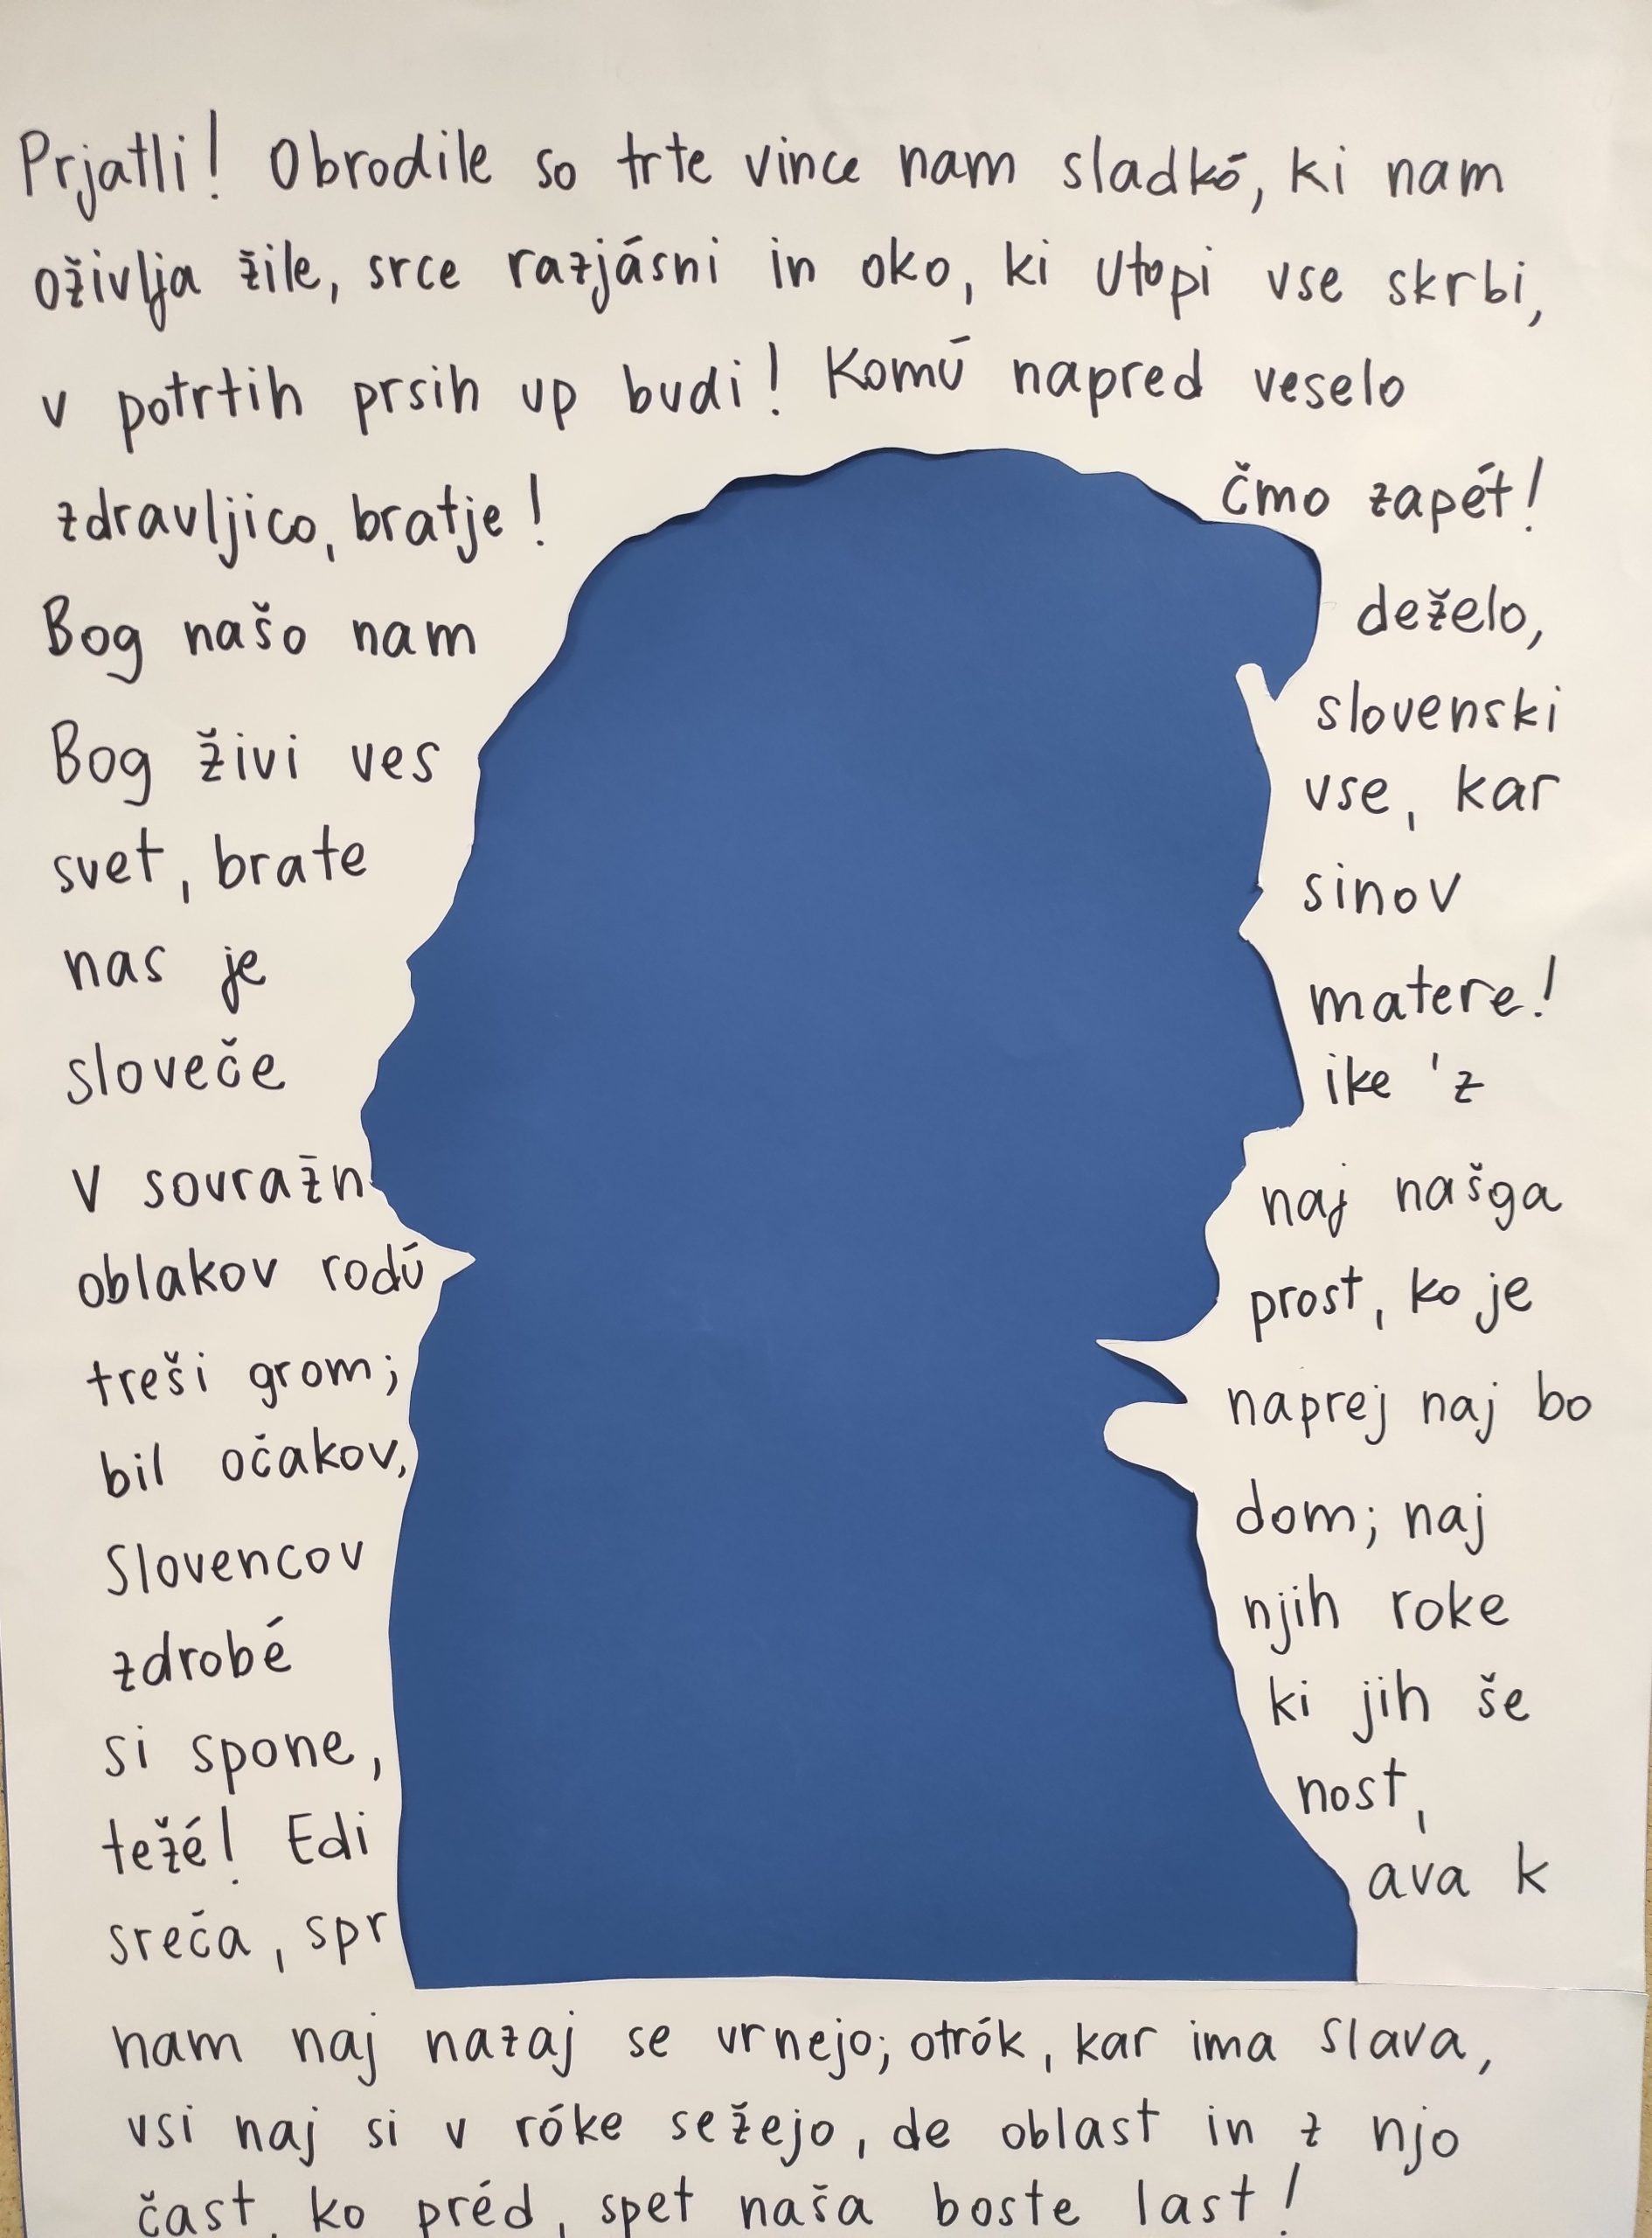 Prjatli! Obrodile so trte vince nam sladkó, ki nam
oživlja žile, srce razjásni in oko, ki utopi vse skrbi,
v potrtih prsih up budi! Komú napred veselo
zdravljico, bratje! čmo zapét!
Bog našo nam deželo,
Bog živi ves slovenski
svet, brate vse, kar
nas je sinov
sloveče matere!
V sovražn ike 'z
oblakov rodú naj našga
treši grom; prost, ko je
bil očakov, naprej naj bo
Slovencov dom; naj
zdrobé njih roke
si spone, ki jih še
težé! Edi nost,
sreča, spr ava k
nam naj nazaj se vrnejo; otrók, kar ima Slava,
vsi naj si v róke sežejo, de oblast in z njo
čast, ko préd, spet naša boste last!